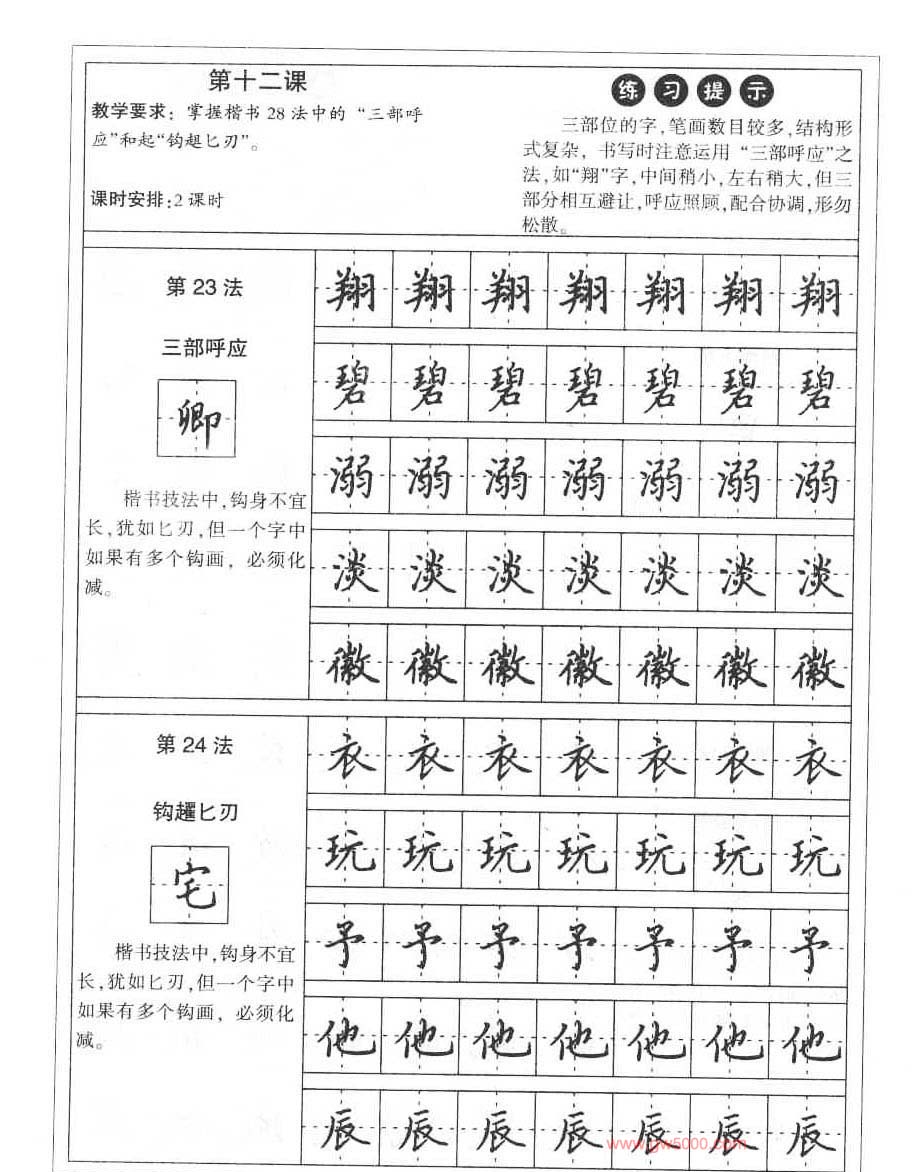 第十二课
教学要求：掌握楷书28法中的“三部呼
应”和起“钩趯匕刃”。
课时安排：2课时
练习提示
三部位的字，笔画数目较多，结构形
式复杂，书写时注意运用“三部呼应”之
法，如“翔”字，中间稍小，左右稍大，但三
部分相互避让，呼应照顾，配合协调，形勿
松散。
第23法
三部呼应
卿
楷书技法中，钩身不宜
长，犹如匕刃，但一个字中
如果有多个钩画，必须化
减。
翔翔翔翔翔翔翔
碧碧碧碧碧碧碧
溺溺溺溺溺溺溺
淡淡淡淡淡淡淡
徽徽徽徽徽徽徽
第24法
钩趯匕刃
宅
楷书技法中，钩身不宜
长，犹如匕刃，但一个字中
如果有多个钩画，必须化
减。
衣衣衣衣衣衣衣
玩玩玩玩玩玩玩
予予予予予予予
他他他他他他他
辰辰辰辰辰辰辰